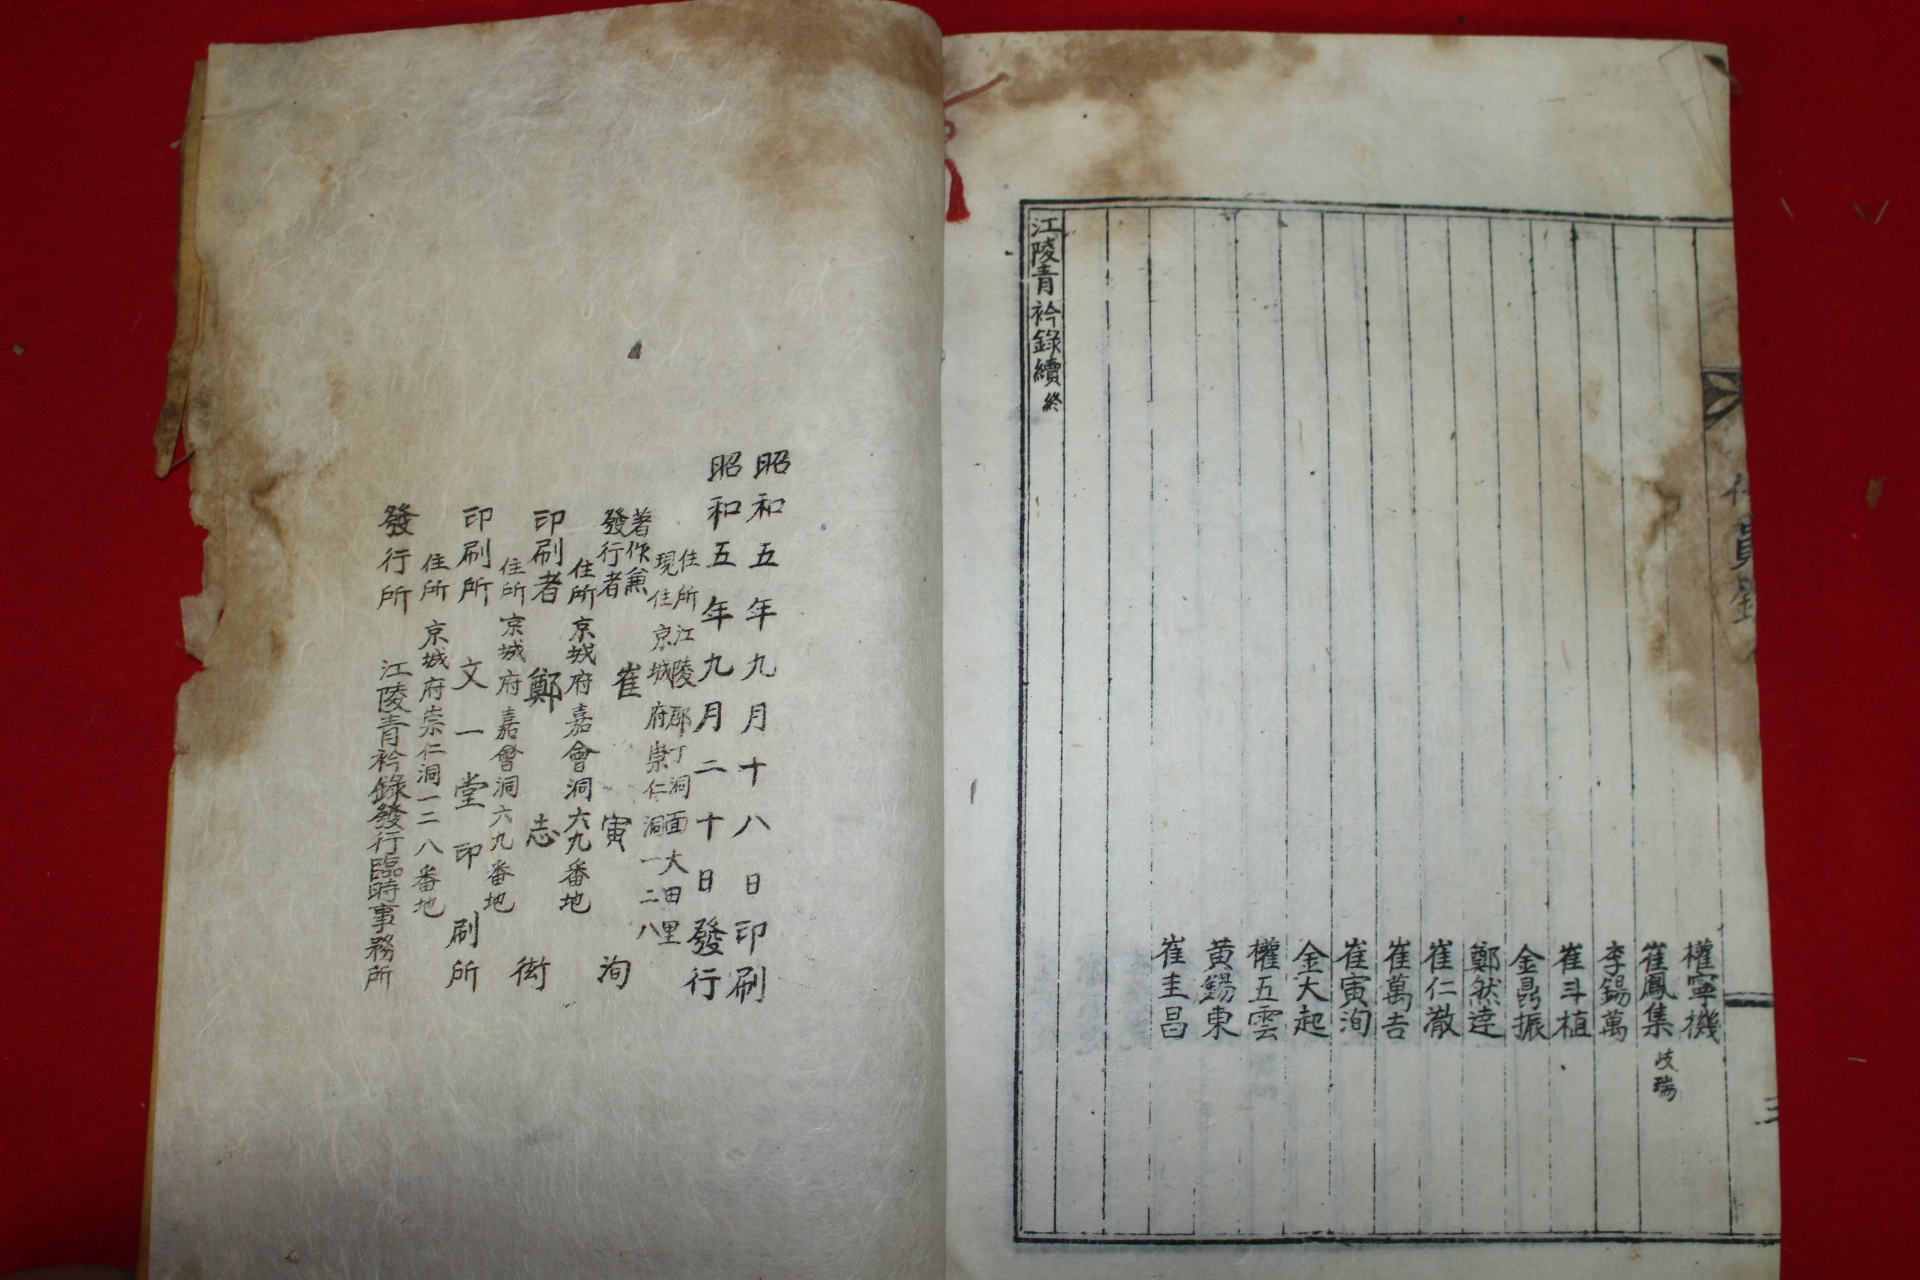 任員錄
三
權寧機
崔鳳集 岐瑞
李錫萬
崔斗植
金鼎振
鄭然逹
崔仁澈
崔萬吉
崔寅洵
金大起
權五雲
黄錫東
崔圭昌
江陵青衿錄續 終
昭和五年九月十八日印刷
昭和五年九月二十日發行
住所 江陵郡丁洞面大田里
現住 京城府崇仁洞一二八
著作兼
發行者 崔寅洵
住所 京城府嘉會洞六九番地
印刷者 鄭志衒
住所 京城府嘉會洞六九番地
印刷所 文一堂印刷所
住所 京城府崇仁洞一二八番地
發行所 江陵青衿錄發行臨時事務所